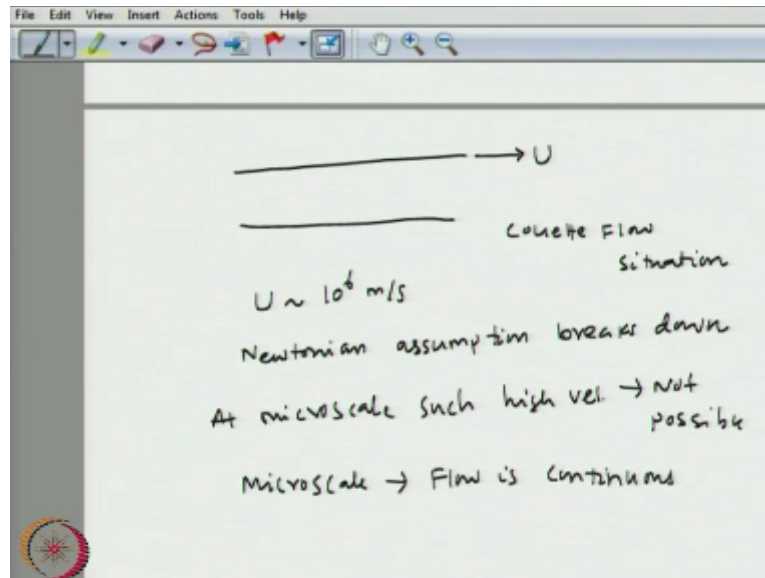 File Edit View Insert Actions Tools Help
→ U
Couette Flow
situation
U ~ 10⁶ m/s
Newtonian assumption breaks down
At microscale such high vel → Not
possible
Microscale → Flow is continuous